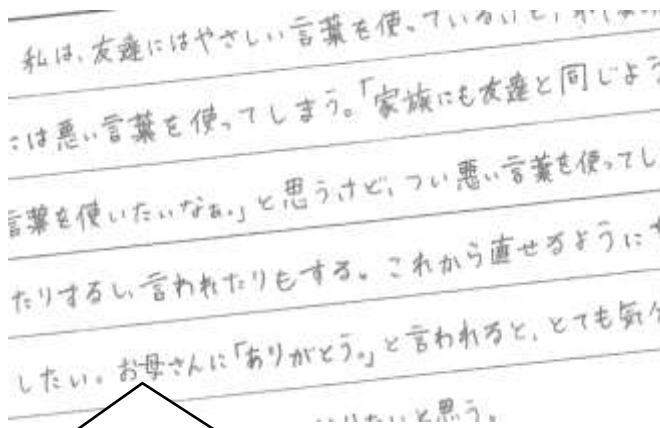 私は、友達にはやさしい言葉を使っているけど、
には悪い言葉を使ってしまう。「家族にも友達と同じよう
言葉を使いたいなぁ。」と思うけど、つい悪い言葉を使ってし
たりするし、言われたりもする。これから直せるように
したい。お母さんに「ありがとう。」と言われると、とても気分
りたいと思う。